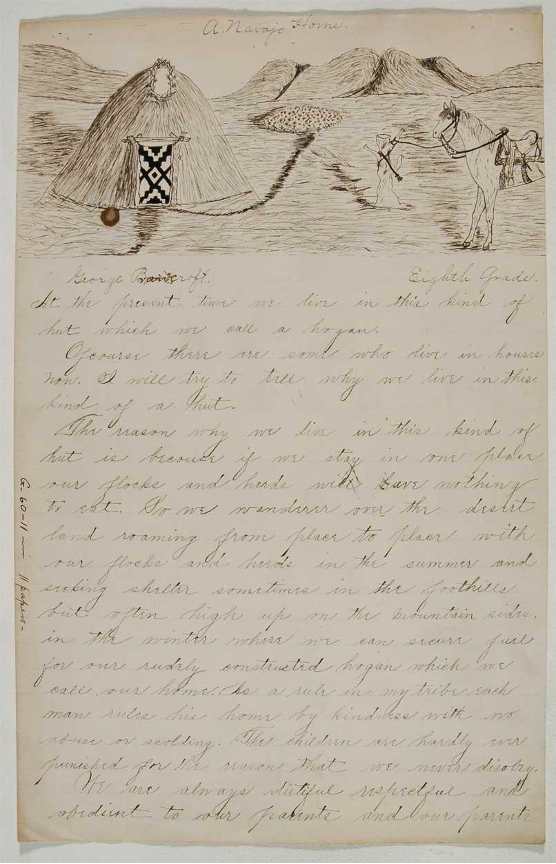 A Navajo Home.
George Bancroft. Eighth Grade.
At the present time we live in this kind of
hut which we call a hogan.
Ofcourse there are some who live in houses
now. I will try to tell why we live in this
kind of a hut.
The reason why we live in this kind of
hut is because if we stay in one place
our flocks and herds will have nothing
to eat. So we wanderer over the desert
land roaming from place to place with
our flocks and herds in the summer and
seeking shelter sometimes in the foothills
but often high up on the mountain sides,
in the winter where we can secure fuel
for our rudely constructed hogan which we
call our home. As a rule in my tribe each
man rules his home by kindness with no
abuse or scolding. The children are hardly ever
punished for the reason that we never disobey.
We are always dutiful respectful and
obedient to our parents and our parents
G-60-11 — 11 papers-